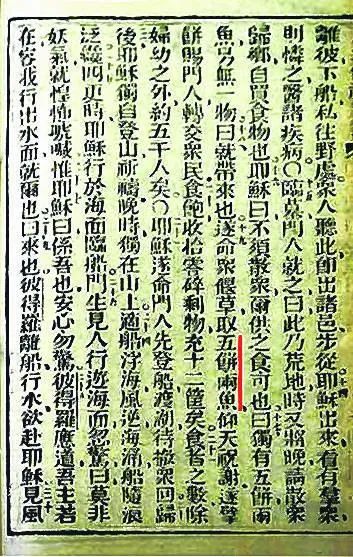 離彼下船私往野處衆人聽此即出諸邑步從耶穌出來看有羣衆
則憐之醫諸疾病○臨墓門人就之曰此乃荒地時又將晚請散衆
歸鄉自買食物也耶穌曰不須散衆爾供之食可也曰獨有五餅兩
魚另無一物曰就帶來也遂命衆偃草取五餅兩魚仰天祝謝遂擘
餅賜門人轉交衆民食飽收拾零碎剩物充十二筐矣食者之數除
婦幼之外約五千人矣○耶穌遂命門人先登船渡湖待散衆回歸
後耶穌獨自登山祈禱晚時獨在山上適船浮海風逆海涌船隨浪
泛四更時耶穌行於海面臨船門生見人行遊海面忽驚曰莫非
妖氣就惶怖號喊惟耶穌曰係吾也安心勿驚彼得羅應道吾主若
在容我行出水面就爾也曰來也彼得羅離船行水欲赴耶穌見風